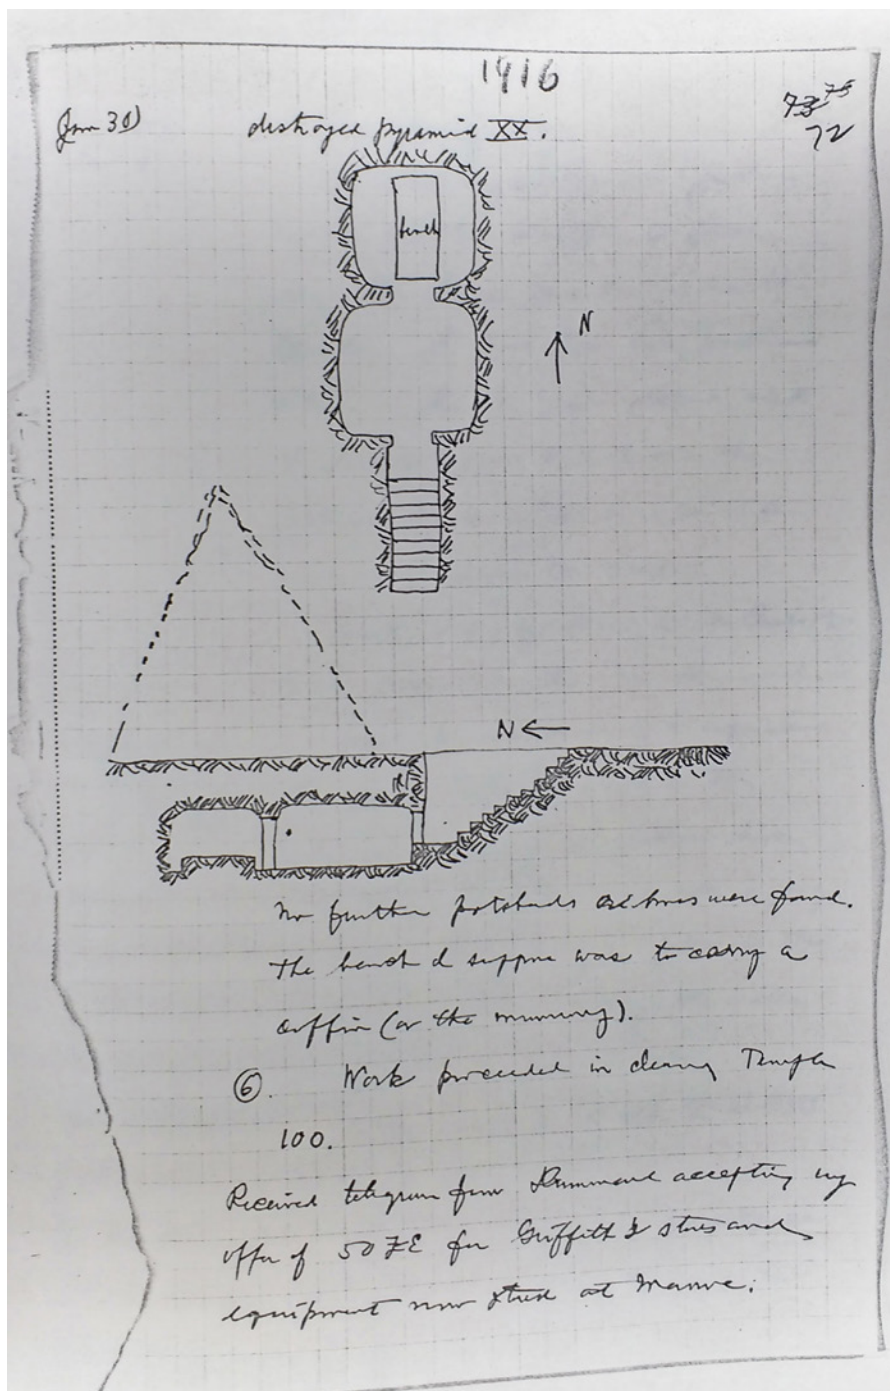 1916
(Jan 30) destroyed pyramid XX. 73 75
72
bench
N
N
No further potsherds or bones were found.
The bench I suppose was to carry a
coffin (or the mummy).
⑥. Work proceeded in clearing Temple
100.
Received telegram from Drummond accepting my
offer of 50 £E for Griffith's stores and
equipment now stored at Merowe.